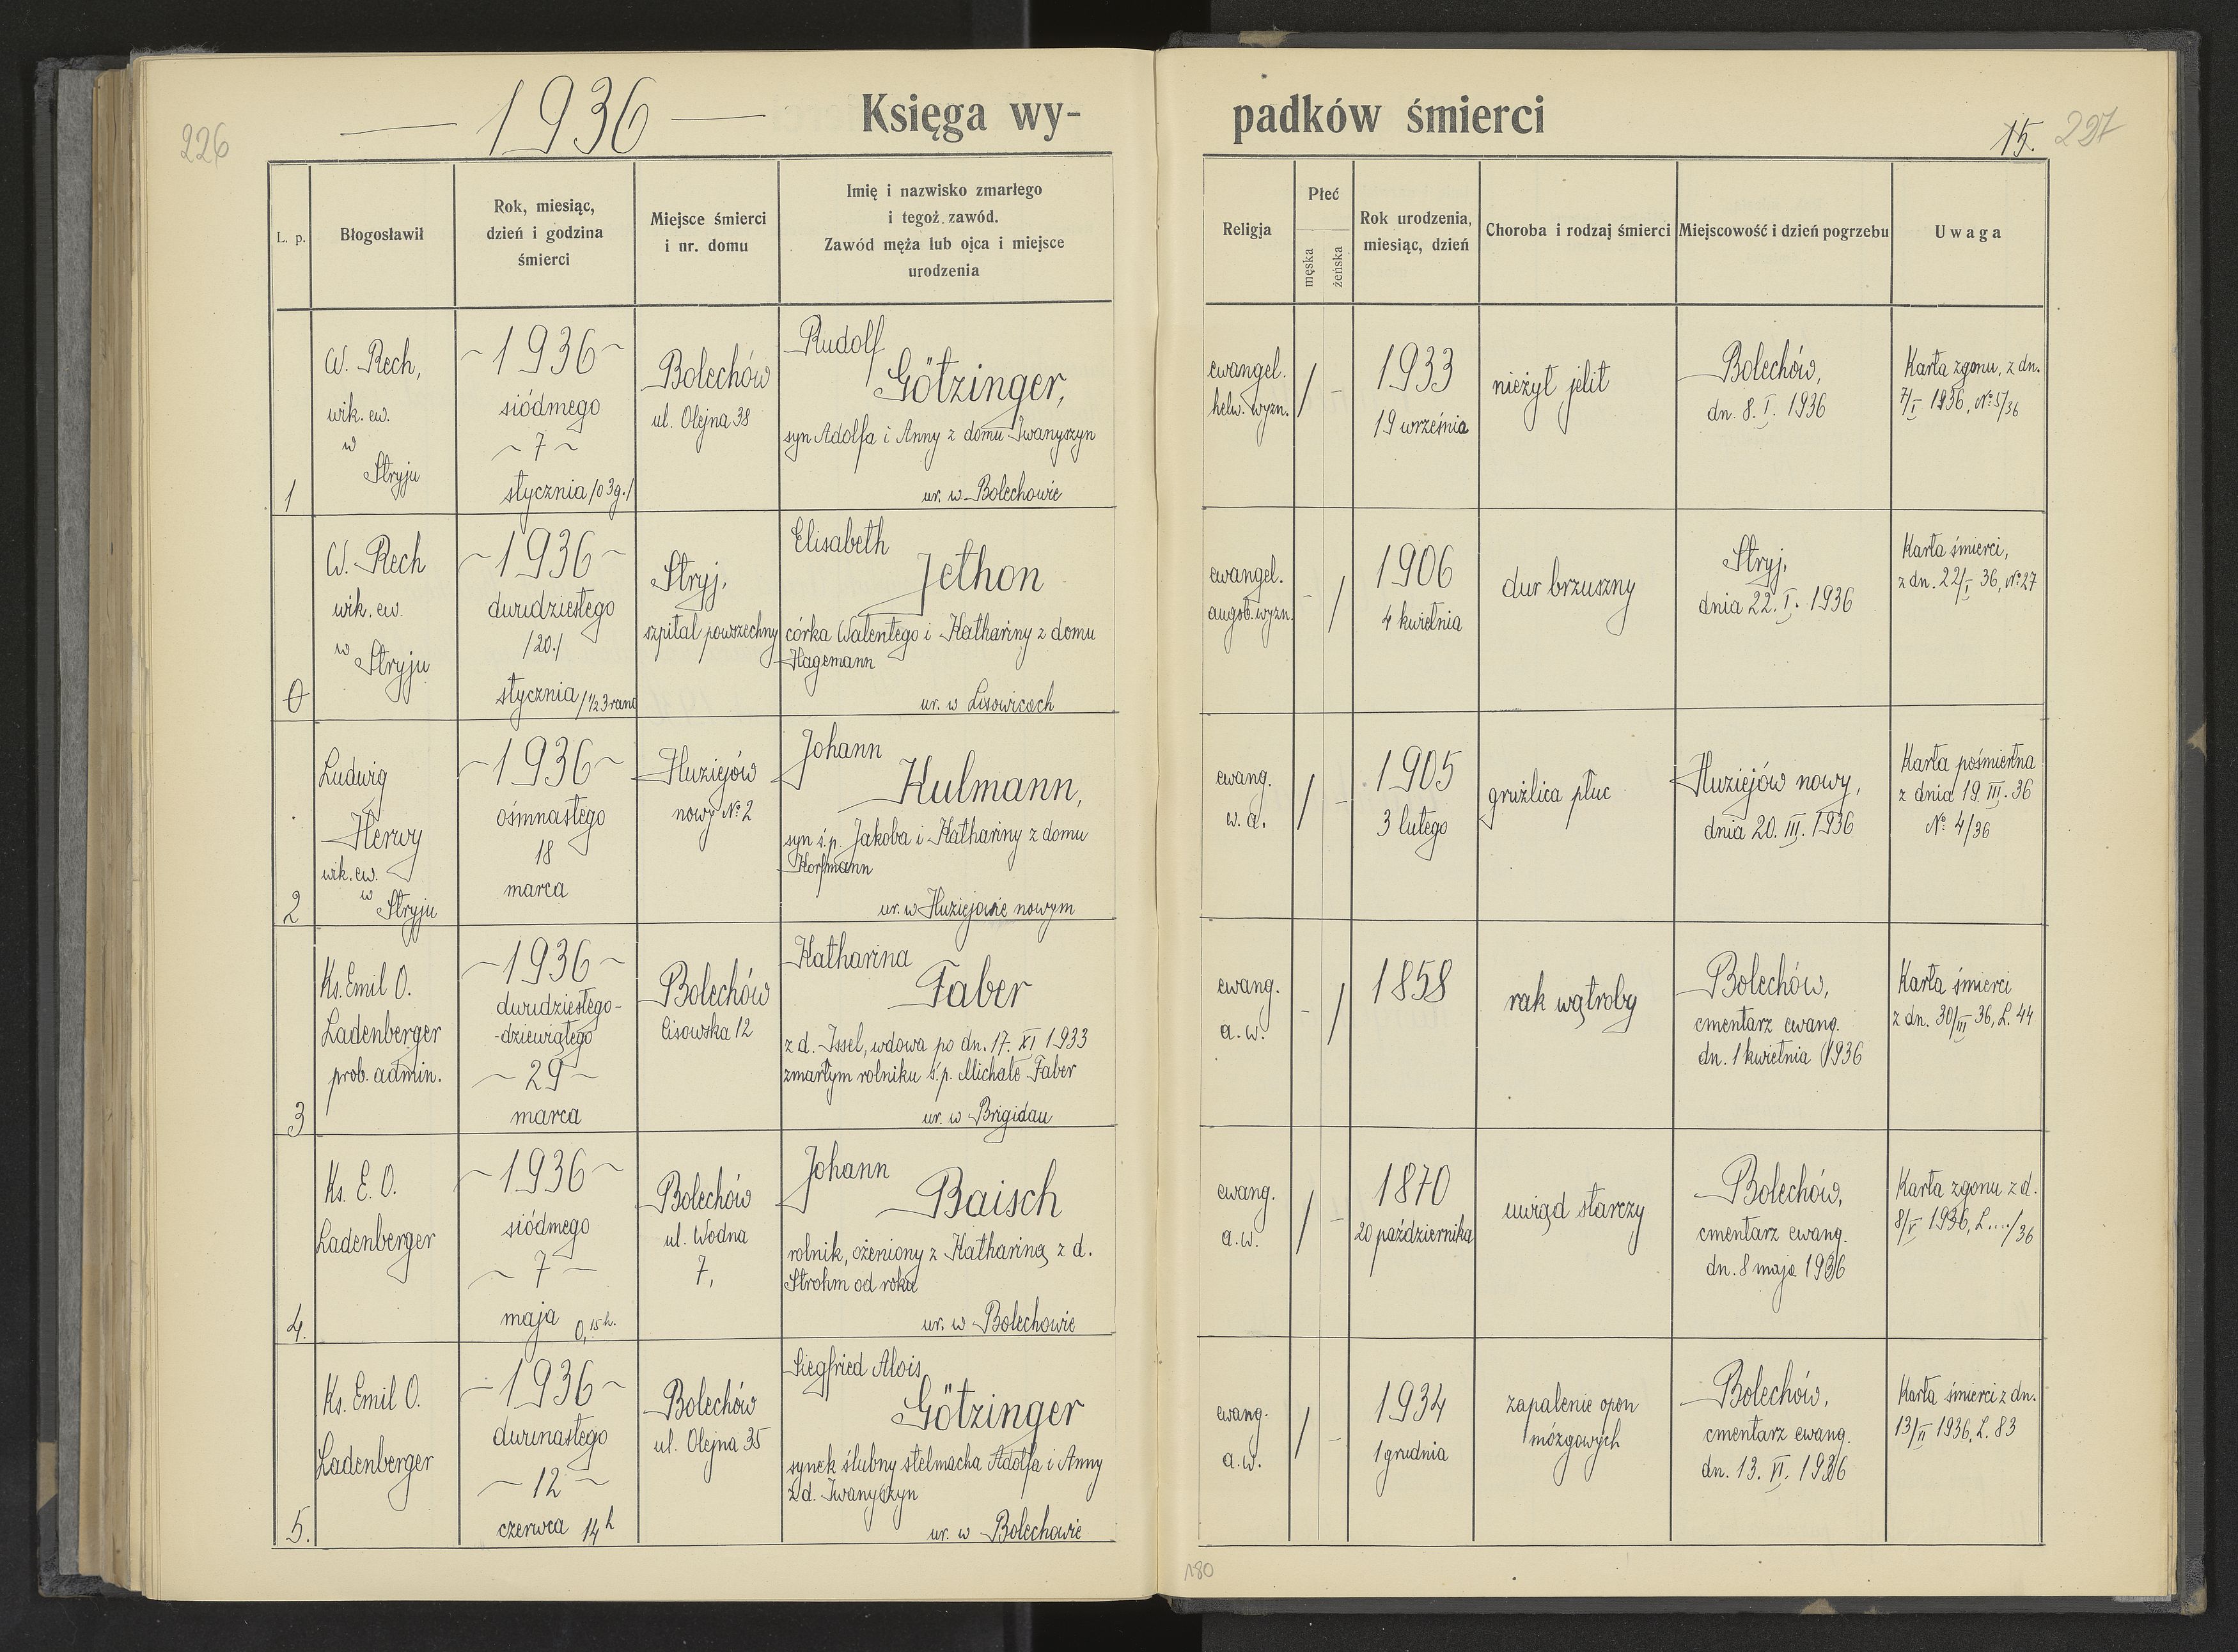 226
— 1936 —
Księga wy-
padków śmierci
15. 227
L. p.
Błogosławił
Rok, miesiąc,
dzień i godzina
śmierci
Miejsce śmierci
i nr. domu
Imię i nazwisko zmarłego
i tegoż zawód.
Zawód męża lub ojca i miejsce
urodzenia
Religja
Płeć
męska
żeńska
Rok urodzenia,
miesiąc, dzień
Choroba i rodzaj śmierci
Miejscowość i dzień pogrzebu
Uwaga
1
W. Rech,
wik. ew.
w
Stryju
~1936~
siódmego
~ 7 ~
stycznia /o 3g./
Bolechów
ul. Olejna 38
Rudolf
Götzinger,
syn Adolfa i Anny z domu Iwanyszyn
ur. w Bolechowie
ewangel.
helw. wyzn.
/ -
1933
19 września
nieżyt jelit
Bolechów,
dn. 8. I. 1936
Karta zgonu, z dn.
7/I 1936, № 5/36
0
W. Rech
wik. ew.
w
Stryju
~1936~
dwudziestego
/20./
stycznia /½3 rano
Stryj,
szpital powszechny
Elisabeth
Jethon
córka Walentego i Kathariny z domu
Hagemann
ur. w Lisowicach
ewangel.
augsb. wyzn.
- /
1906
4 kwietnia
dur brzuszny
Stryj,
dnia 22. I. 1936
Karta śmierci,
z dn. 22/I 36, № 27
2
Ludwig
Herwy
wik. ew.
w
Stryju
~1936~
ośmnastego
18
marca
Huziejów
nowy № 2
Johann
Kulmann,
syn ś.p. Jakoba i Kathariny z domu
Horfmann
ur. w Huziejowie nowym
ewang.
w. a.
/ -
1905
3 lutego
gruźlica płuc
Huziejów nowy,
dnia 20. III. 1936
Karta pośmiertna
z dnia 19. III. 36
№ 4/36
3
Ks. Emil O.
Ladenberger
prob. admin.
~1936~
dwudziestego-
-dziewiątego
~ 29 ~
marca
Bolechów
Lisowska 12
Katharina
Faber
z d. Issel, wdowa po dn. 17. XI 1933
zmarłym rolniku ś.p. Michale Faber
ur. w Brigidau
ewang.
a. w.
- /
1858
rak wątroby
Bolechów,
cmentarz ewang.
dn. 1 kwietnia 1936
Karta śmierci
z dn. 30/III 36, L. 44
4.
Ks. E. O.
Ladenberger
~1936~
siódmego
~ 7 ~
maja 0,15 h.
Bolechów
ul. Wodna
7,
Johann
Baisch
rolnik, ożeniony z Kathariną z d.
Strohm od roku
ur. w Bolechowie
ewang.
a. w.
/ -
1870
20 października
uwiąd starczy
Bolechów,
cmentarz ewang.
dn. 8 maja 1936
Karta zgonu z d.
8/V 1936, L..../36
5.
Ks. Emil O.
Ladenberger
~1936~
dwunastego
~ 12 ~
czerwca 14 h
Bolechów
ul. Olejna 35
Siegfried Alois
Götzinger
synek ślubny stelmacha Adolfa i Anny
z d. Iwanyszyn
ur. w Bolechowie
ewang.
a. w.
/ -
1934
1 grudnia
zapalenie opon
mózgowych
Bolechów,
cmentarz ewang.
dn. 13. VI. 1936
Karta śmierci z dn.
13/VI 1936, L. 83
180